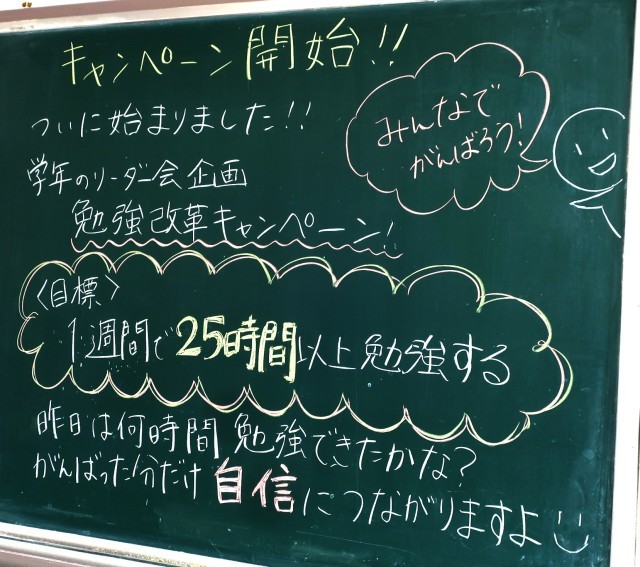 キャンペーン開始!!
ついに始まりました!!
みんなで
がんばろう!
学年のリーダー会企画
勉強改革キャンペーン!
〈目標〉
1週間で25時間以上勉強する
昨日は何時間勉強できたかな?
がんばった分だけ自信につながりますよ